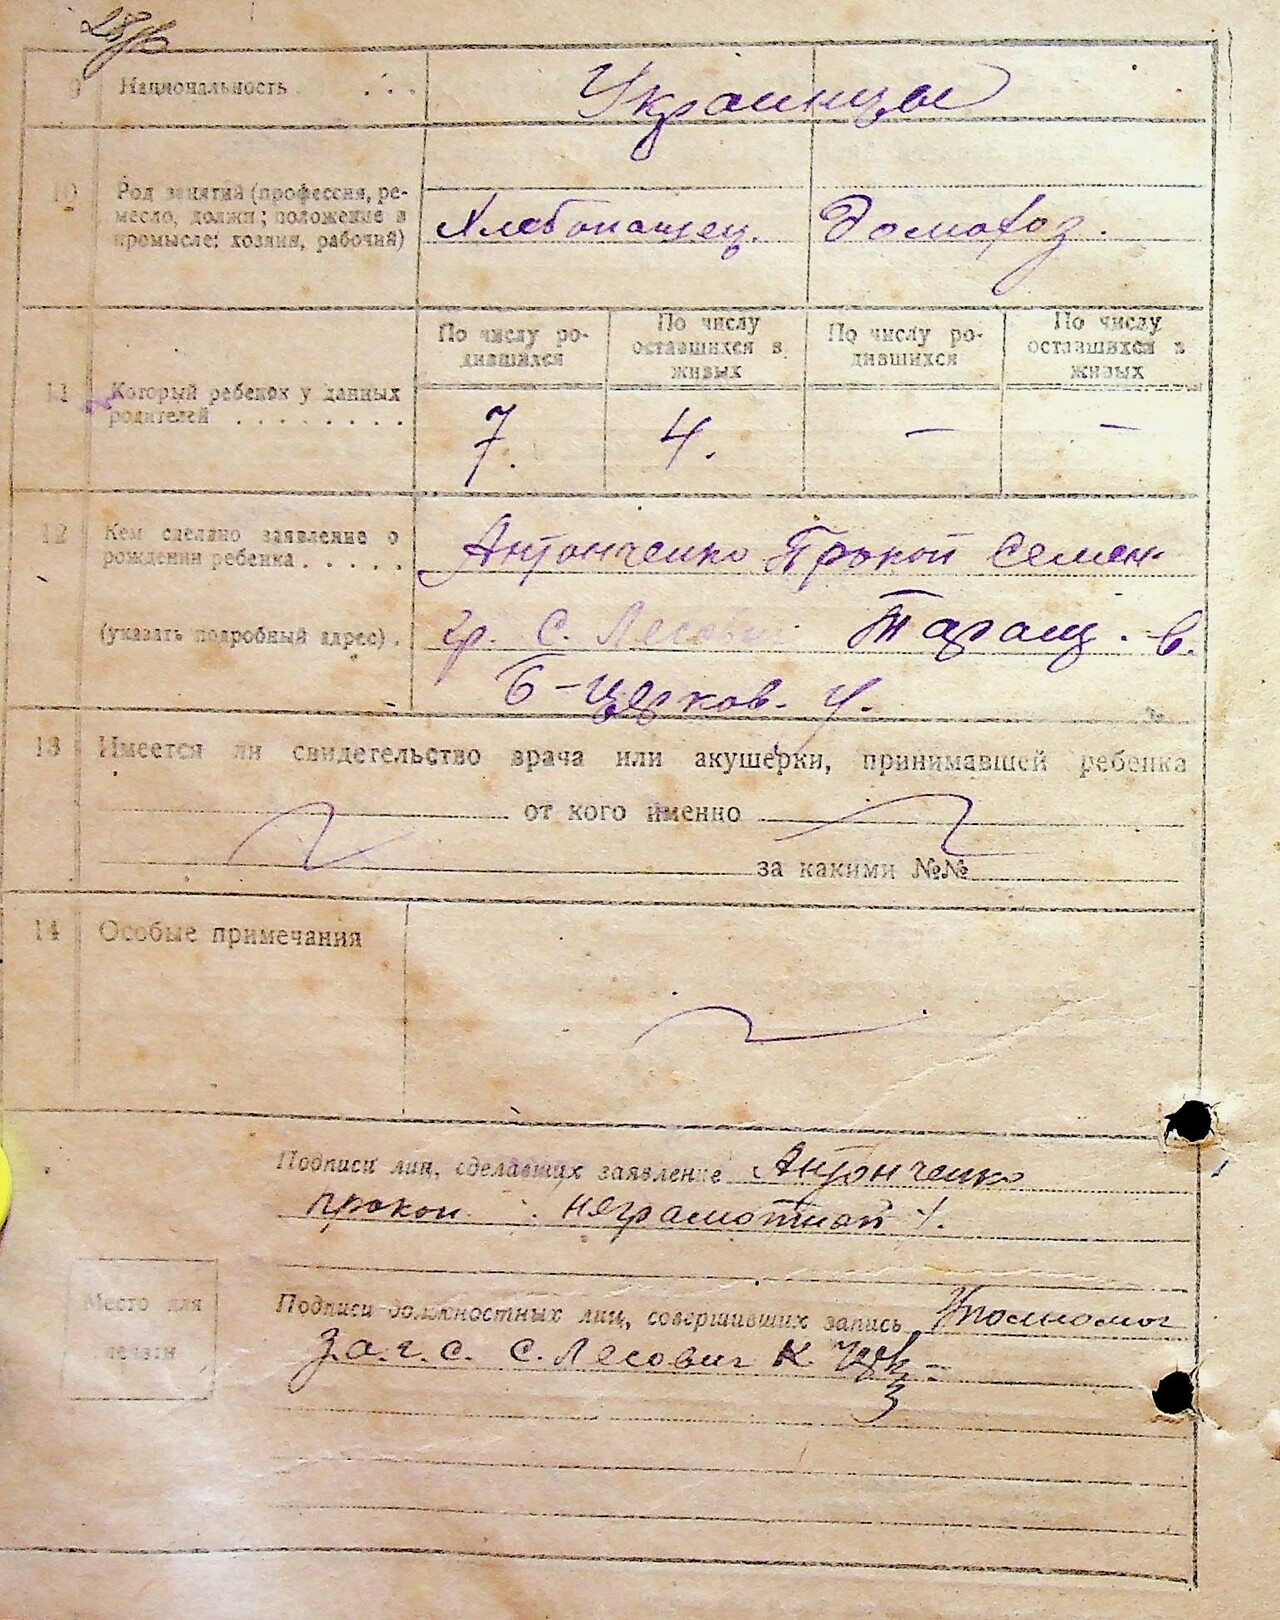 9 Национальность . . . . Украинцы
10 Род занятий (профессия, ре-
месло, должн; положение в
промысле: хозяин, рабочий)
Хлебопашец. Домохоз.
По числу ро-
дившихся
По числу
оставшихся в
живых
По числу ро-
дившихся
По числу
оставшихся в
живых
11 Который ребенок у данных
родителей . . . . . . . .
7. 4. — —
12 Кем сделано заявление о
рождении ребенка . . . . .
(указать подробный адрес) .
Антонченко Прокоп Семен
гр. С. Лесович Таращ. в.
Б-Церков. У.
13 Имеется ли свидетельство врача или акушерки, принимавшей ребенка
от кого именно
за какими №№
14 Особые примечания
Подписи лиц, сделавших заявление Антонченко
Прокоп неграмотной
Подписи должностных лиц, совершивших запись Уполномоч
З.а.г.с. С. Лесович К.
Место для
печати